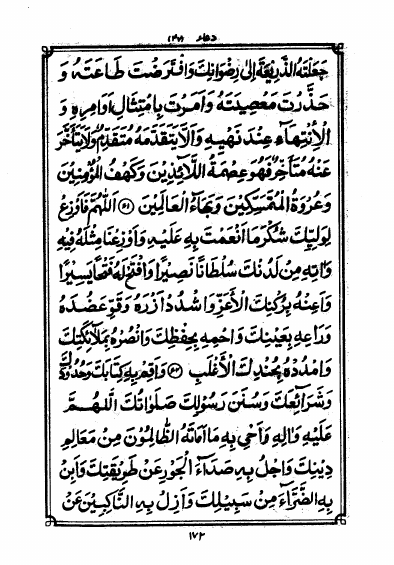 دعاء (۴۷)
جَعَلْتَهُ الذَّرِيعَةَ إِلىٰ رِضْوَانِكَ وَافْتَرَضْتَ طَاعَتَهُ وَ
حَذَّرْتَ مَعْصِيَتَهُ وَاَمَرْتَ بِامْتِثَالِ اَوَامِرِهٖ وَ
الْاِنْتِهَآءِ عِنْدَ نَهْيِهٖ وَاَلَّا يَتَقَدَّمَهُ مُتَقَدِّمٌ وَلَا يَتَاَخَّرَ
عَنْهُ مُتَاَخِّرٌ فَهُوَ عِصْمَةُ اللَّائِذِيْنَ وَكَهْفُ الْمُؤْمِنِيْنَ
وَعُرْوَةُ الْمُتَمَسِّكِيْنَ وَبَهَآءُ الْعَالَمِيْنَ (۶۱) اَللّٰهُمَّ فَاَوْزِعْ
لِوَلِيِّكَ شُكْرَ مَا اَنْعَمْتَ بِهٖ عَلَيْهِ وَاَوْزِعْنَا مِثْلَهُ فِيْهِ
وَاٰتِهٖ مِنْ لَدُنْكَ سُلْطَانًا نَصِيْرًا وَافْتَحْ لَهُ فَتْحًا يَسِيْرًا
وَاَعِنْهُ بِرُكْنِكَ الْاَعَزِّ وَاشْدُدْ اَزْرَهُ وَقَوِّ عَضُدَهُ
وَرَاعِهٖ بِعَيْنِكَ وَاحْمِهٖ بِحِفْظِكَ وَانْصُرْهُ بِمَلَآئِكَتِكَ
وَامْدُدْهُ بِجُنْدِكَ الْاَغْلَبِ (۶۲) وَاَقِمْ بِهٖ كِتَابَكَ وَحُدُوْدَكَ
وَشَرَآئِعَكَ وَسُنَنَ رَسُوْلِكَ صَلَوَاتُكَ اللّٰهُمَّ
عَلَيْهِ وَاٰلِهٖ وَاَحْيِ بِهٖ مَا اَمَاتَهُ الظَّالِمُوْنَ مِنْ مَعَالِمِ
دِيْنِكَ وَاجْلُ بِهٖ صَدَآءَ الْجَوْرِ عَنْ طَرِيْقَتِكَ وَاَبِنْ
بِهِ الضَّرَّآءَ مِنْ سَبِيْلِكَ وَاَزِلْ بِهِ النَّاكِبِيْنَ عَنْ
۱۷۲